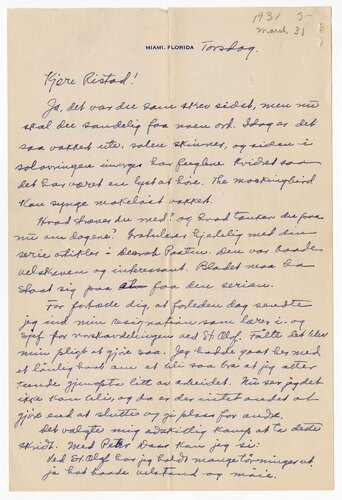 1931 5-
March 31
MIAMI, FLORIDA Torsdag.
Kjere Ristad!
Ja, det var du som skrev sidst, men nu
skal du sandelig faa noen ord. Idag er det
saa vakkert ute, solen skinner, og siden i
solopringen imorges har fuglene kvidret saa
det har været en lyst at høre. The mockingbird
kan synge makeløst vakkert.
Hvad strever du med? og hvad tænker du paa
nu om dagene? Gratulerer hjertelig med din
serie stikler i Decorah Posten. Den var baade
velskreven og interessant. Bladet maa ha
staat sig paa at faa den serien.
For fortrede dig, at forleden dag sendte
jeg ind min resignation som lærer i og
sjef for norskavdelingen ved St. Olaf. Følte det blev
min pligt at gjøre saa. Jeg hadde gaat her med
et lønlig haab om at bli saa bra at jeg atter
kunde gjenopta litt av arbeidet. Nu ser jeg det
ikke kan bli, og da er der intet andet at
gjøre end at slutte og gi plass for andre.
Det valgte mig adskillig kamp at ta dette
skridt. Med Peter Daas kan jeg si:
Ved St. Olaf har jeg havt mange tørninger ut,
ja hat baade velstand og møie.